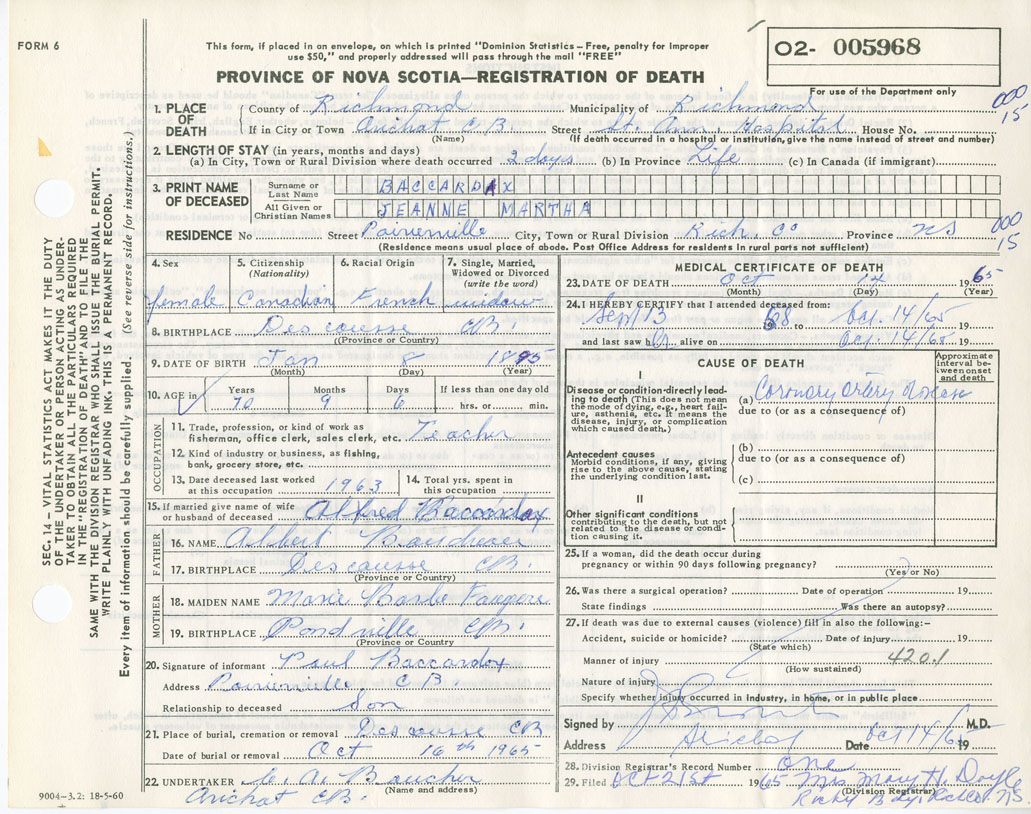 FORM 6
This form, if placed in an envelope, on which is printed "Dominion Statistics – Free, penalty for improper
use $50," and properly addressed will pass through the mail "FREE"
O2- 005968
PROVINCE OF NOVA SCOTIA—REGISTRATION OF DEATH
For use of the Department only
000
15
1. PLACE OF DEATH
County of Richmond Municipality of Richmond
If in City or Town Arichat C B. Street St. Ann. Hospital House No.
(Name) (If death occurred in a hospital or institution, give name instead of street and number)
2. LENGTH OF STAY (in years, months and days)
(a) In City, Town or Rural Division where death occurred 2 days (b) In Province Life (c) In Canada (if immigrant)
3. PRINT NAME OF DECEASED
Surname or Last Name BACCARDAX
All Given or Christian Names JEANNE MARTHA
RESIDENCE No Street Poirierville City, Town or Rural Division Rich. Co Province NS
000
15
(Residence means usual place of abode. Post Office Address for residents in rural parts not sufficient)
4. Sex female
5. Citizenship (Nationality) Canadian
6. Racial Origin French
7. Single, Married, Widowed or Divorced (write the word) widow
8. BIRTHPLACE Descousse CB.
(Province or Country)
9. DATE OF BIRTH Jan 8 1895
(Month) (Day) (Year)
10. AGE in Years 70 Months 9 Days 6 If less than one day old hrs. or min.
OCCUPATION
11. Trade, profession, or kind of work as fisherman, office clerk, sales clerk, etc. Teacher
12. Kind of industry or business, as fishing, bank, grocery store, etc.
13. Date deceased last worked at this occupation 1963
14. Total yrs. spent in this occupation
15. If married give name of wife or husband of deceased Alfred Baccardax
FATHER
16. NAME Albert
17. BIRTHPLACE Descousse CB.
(Province or Country)
MOTHER
18. MAIDEN NAME Marie Barbe Fougere
19. BIRTHPLACE Pondville CB.
(Province or Country)
20. Signature of informant Paul Baccardax
Address Poirierville, C B
Relationship to deceased Son
21. Place of burial, cremation or removal Descousse CB
Date of burial or removal Oct 16th 1965
22. UNDERTAKER C. A. Boucher
(Name and address)
Arichat CB.
MEDICAL CERTIFICATE OF DEATH
23. DATE OF DEATH Oct 14 1965
(Month) (Day) (Year)
24. I HEREBY CERTIFY that I attended deceased from:
Sept 13 to Oct. 14/65 19
and last saw h er alive on Oct. 14/65 19
CAUSE OF DEATH
Approximate interval between onset and death
I
Disease or condition directly leading to death (This does not mean the mode of dying, e.g., heart failure, asthenia, etc. It means the disease, injury, or complication which caused death.)
(a) Coronary Artery disease
due to (or as a consequence of)
Antecedent causes
Morbid conditions, if any, giving rise to the above cause, stating the underlying condition last.
(b)
due to (or as a consequence of)
(c)
II
Other significant conditions
contributing to the death, but not related to the disease or condition causing it.
25. If a woman, did the death occur during pregnancy or within 90 days following pregnancy?
(Yes or No)
26. Was there a surgical operation? Date of operation 19
State findings Was there an autopsy?
27. If death was due to external causes (violence) fill in also the following:-
Accident, suicide or homicide? Date of injury 19
(State which)
Manner of injury 420.1
(How sustained)
Nature of injury
Specify whether injury occurred in Industry, in home, or in public place
Signed by M.D.
Address Arichat Date Oct 14/65 19
28. Division Registrar's Record Number one
29. Filed Oct 21st 1965 Mrs. Mary H. Doyle
(Division Registrar)
Rocky Bay, NS.
SEC. 14 – VITAL STATISTICS ACT MAKES IT THE DUTY
OF THE UNDERTAKER OR PERSON ACTING AS UNDER-
TAKER TO OBTAIN ALL THE PARTICULARS REQUIRED
IN THE "REGISTRATION OF DEATH" AND FILE THE
SAME WITH THE DIVISION REGISTRAR WHO SHALL ISSUE THE BURIAL PERMIT.
WRITE PLAINLY WITH UNFADING INK. THIS IS A PERMANENT RECORD.
Every item of information should be carefully supplied. (See reverse side for instructions.)
9004-3.2: 18-5-60